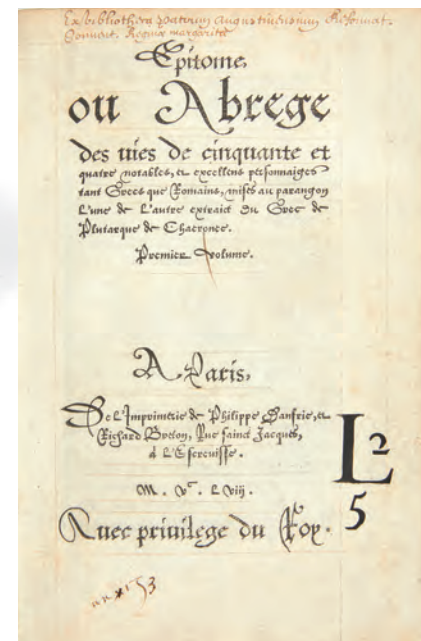 Ex bibliotheca patrum Augustinensium Reformat.
Convent. Reginæ margaritæ
Epitome,
ou Abrege
des uies de cinquante et
quatre notables, et excellens personnaiges
tant Grecs que Romains, mises au parangon
l'une de l'autre extraict du Grec de
Plutarque de Chaeronee.
Premier volume.
A Paris,
De l'Imprimerie de Philippe Danfrie, et
Richard Breton, Rue sainct Jacques,
à l'Escreuisse.
M. v^c. L viij.
Auec priuilege du Roy.
L 2
5